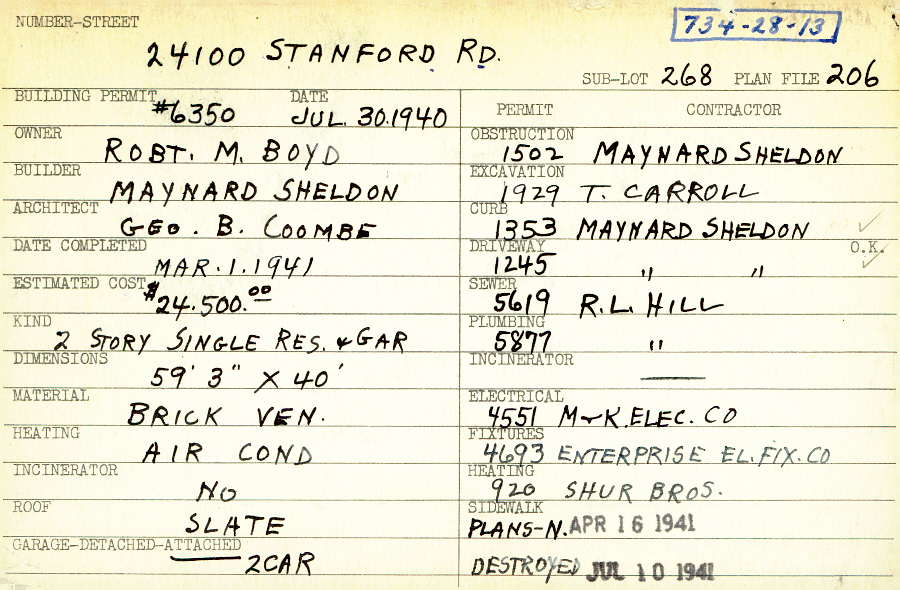 NUMBER-STREET
734-28-13
24100 STANFORD RD.
SUB-LOT 268 PLAN FILE 206
BUILDING PERMIT #6350 DATE JUL. 30.1940
OWNER ROBT. M. BOYD
BUILDER MAYNARD SHELDON
ARCHITECT GEO. B. COOMBE
DATE COMPLETED MAR.1.1941
ESTIMATED COST $24.500.00
KIND 2 STORY SINGLE RES. & GAR
DIMENSIONS 59' 3" X 40'
MATERIAL BRICK VEN.
HEATING AIR COND
INCINERATOR NO
ROOF SLATE
GARAGE-DETACHED-ATTACHED 2CAR
PERMIT CONTRACTOR
OBSTRUCTION 1502 MAYNARD SHELDON
EXCAVATION 1929 T. CARROLL
CURB 1353 MAYNARD SHELDON
DRIVEWAY 1245 " " O.K.
SEWER 5619 R.L. HILL
PLUMBING 5877 "
INCINERATOR —
ELECTRICAL 4551 M&K ELEC. CO
FIXTURES 4693 ENTERPRISE EL. FIX. CO
HEATING 920 SHUR BROS.
SIDEWALK
PLANS-N. APR 16 1941
DESTROYED JUL 10 1941